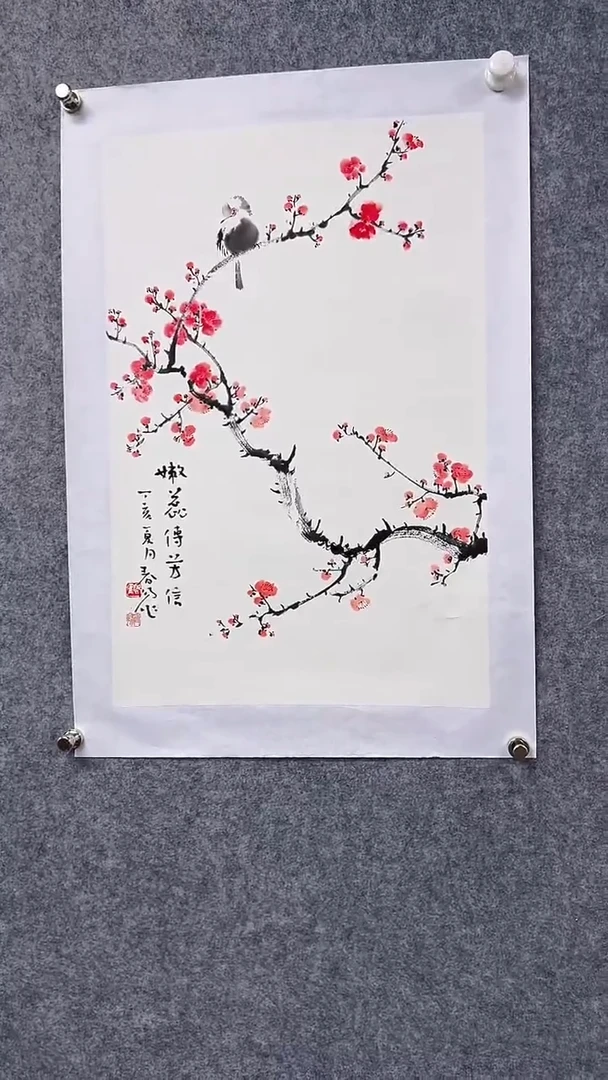 嫩蕊傳芳信
丁亥夏月春鳴作